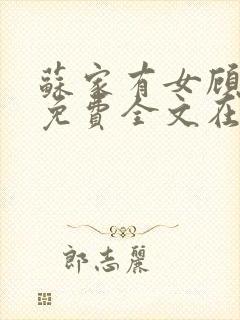 蘇家有女顧
免費全文在
郎志麗